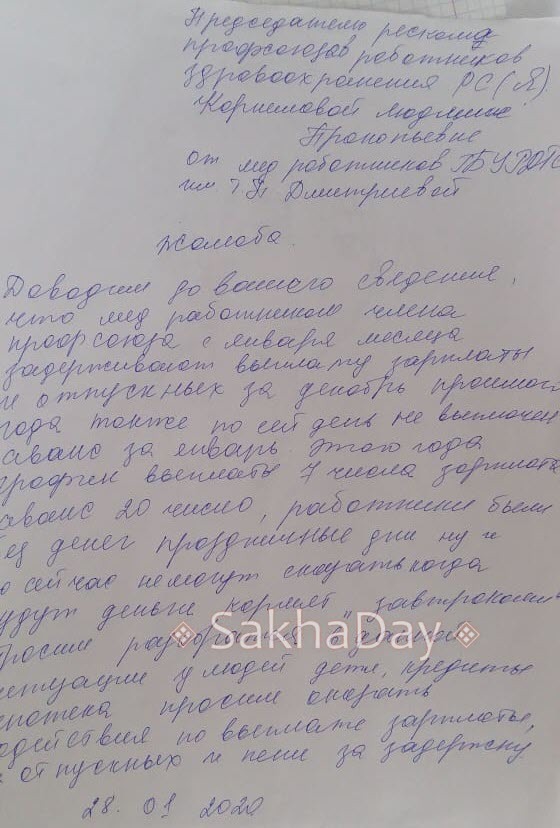 Председателю рескома
профсоюзов работников
здравоохранения РС(Я)
Корниловой Людмиле
Прокопьевне
от мед работников ГБУ РДТС
им Т П Дмитриевой
Жалоба.
Доводим до вашего сведения,
что мед работникам члена
профсоюза с января месяца
задерживают выплату зарплаты
и отпускных за декабрь прошлого
года также по сей день не выплачен
аванс за январь этого года
график выплаты 7 числа зарплата
аванс 20 число, работники были
ез денег праздничные дни ну и
о сейчас немогут сказать когда
удут деньги кормят "завтраками"
росим разобраться в данной
итуации у людей дети, кредиты
ипотека просим оказать
одействия по выплате зарплаты,
отпускных и пени за задержку
28. 01 2020
SakhaDay